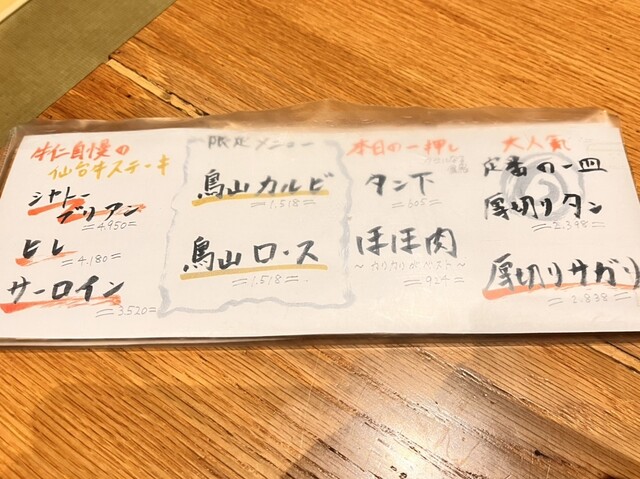 牛仁自慢の
仙台牛ステーキ
シャトー
ブリアン
=4,950=
ヒレ
=4,180=
サーロイン
=3520=
限定メニュー
鳥山カルビ
=1,518=
鳥山ロース
=1,518=
本日の一押し
タン下
=605=
ほほ肉
=924=
大人気
定番の一皿
厚切りタン
=2,398=
厚切りサガリ
=2,838=